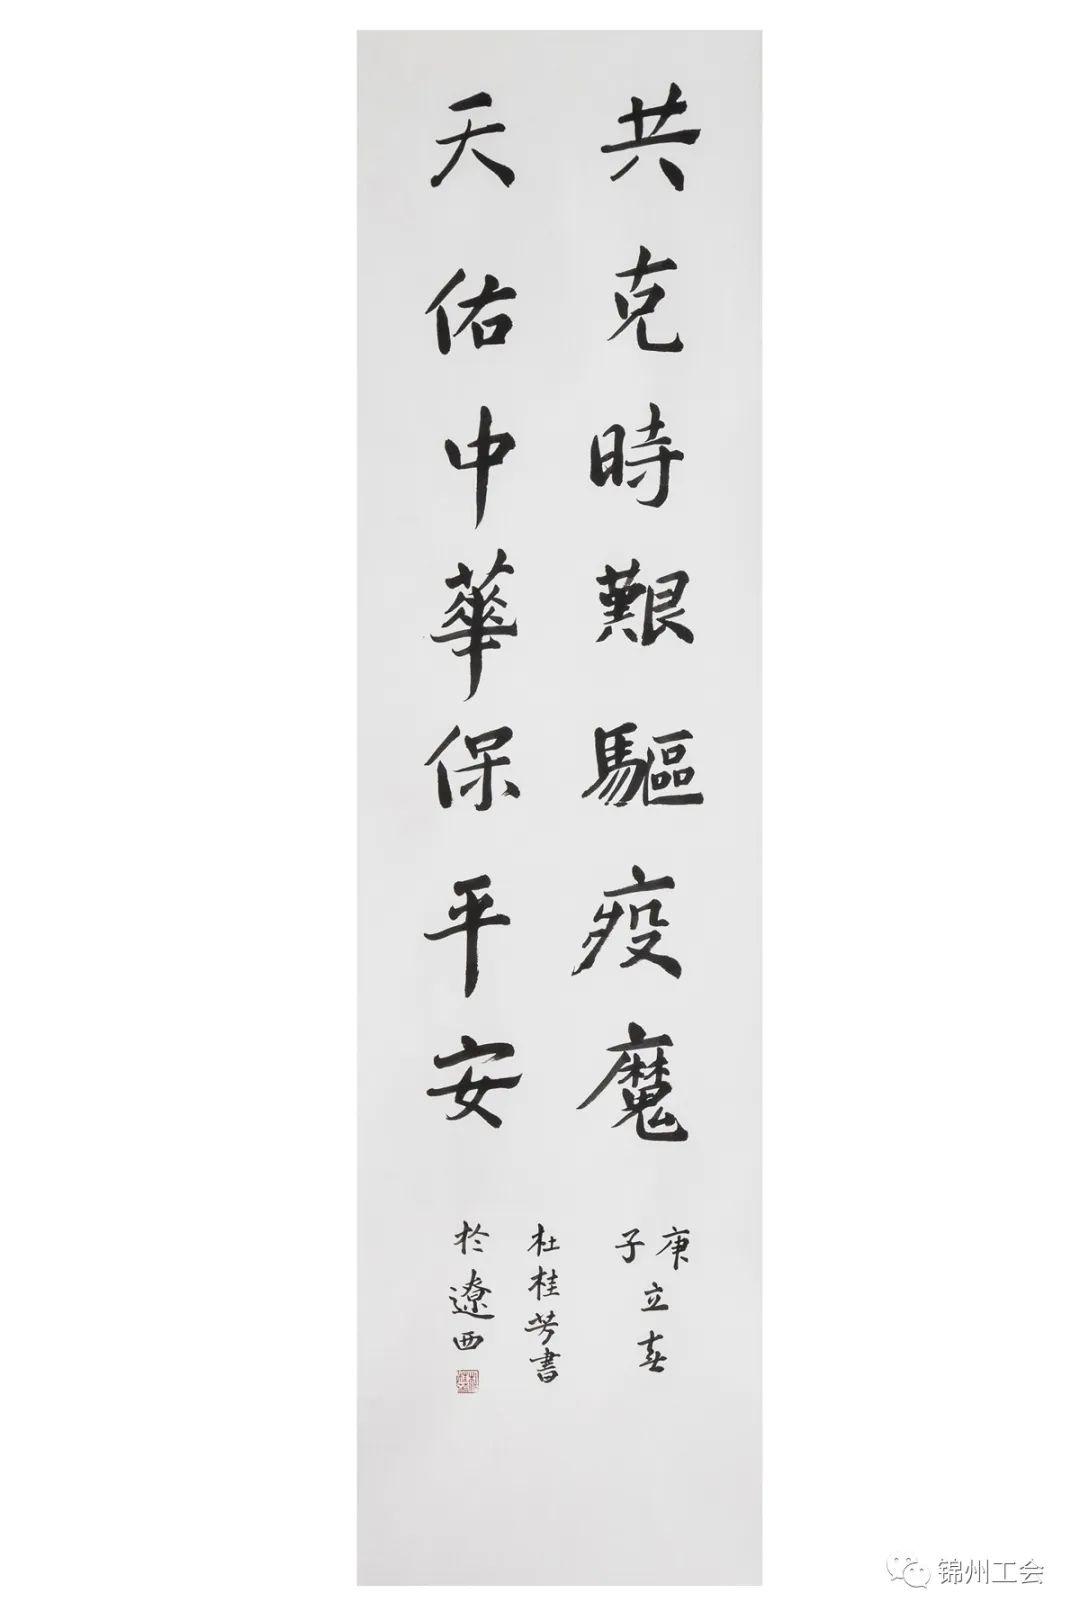 共克時艱驅疫魔
天佑中華保平安
庚子立春
杜桂芳書
於遼西
锦州工会